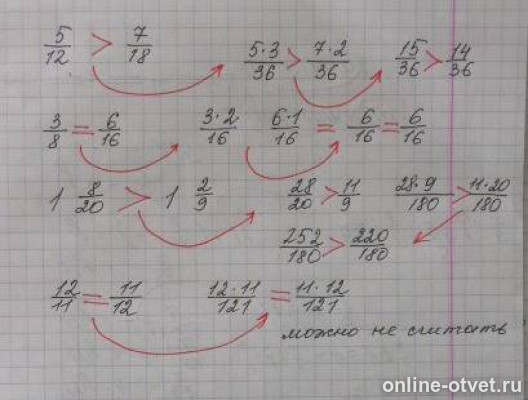 5/12 > 7/18   5·3/36 > 7·2/36   15/36 > 14/36
3/8 = 6/16   3·2/16   6·1/16 = 6/16 = 6/16
1 8/20 > 1 2/9   28/20 > 11/9   28·9/180 > 11·20/180
252/180 > 220/180
12/11 = 11/12   12·11/121 = 11·12/121
можно не считать
online-otvet.ru